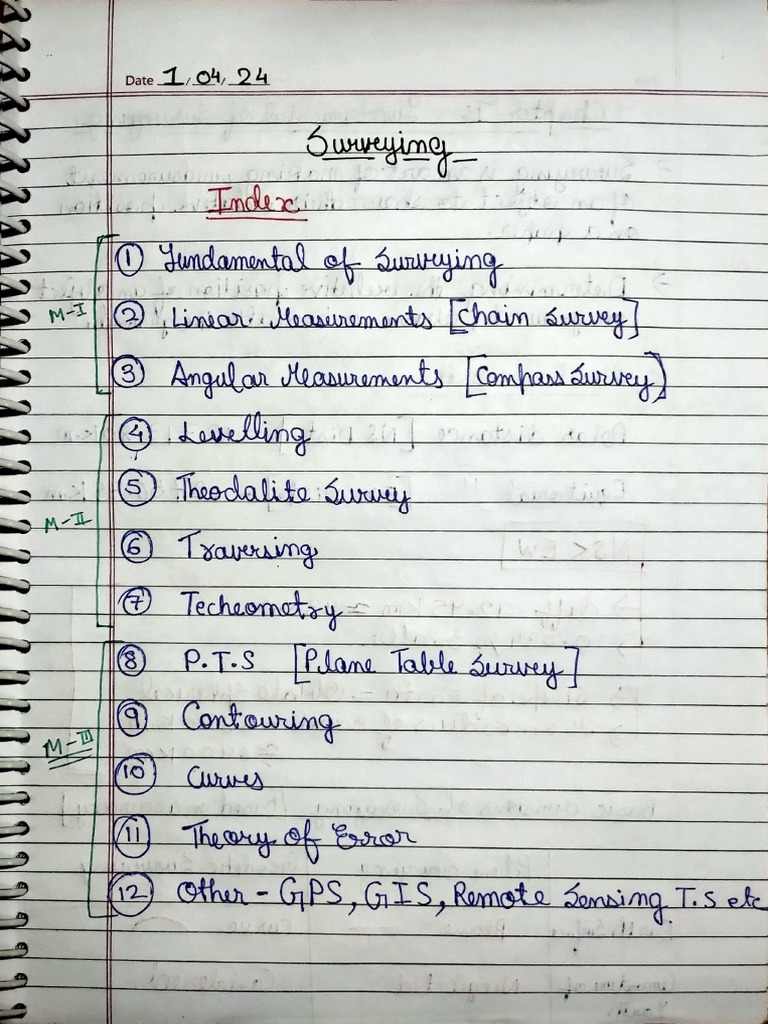 Date 1/04/24
Surveying
Index
① Fundamental of Surveying
M-I
② Linear Measurements [Chain Survey]
③ Angular Measurements [Compass Survey)
④ Levelling
⑤ Theodalite Survey
M-II
⑥ Traversing
⑦ Techeometry
⑧ P.T.S [Plane Table Survey]
⑨ Contouring
M-III
⑩ Curves
⑪ Theory of Error
⑫ Other - GPS, GIS, Remote Sensing T.S etc